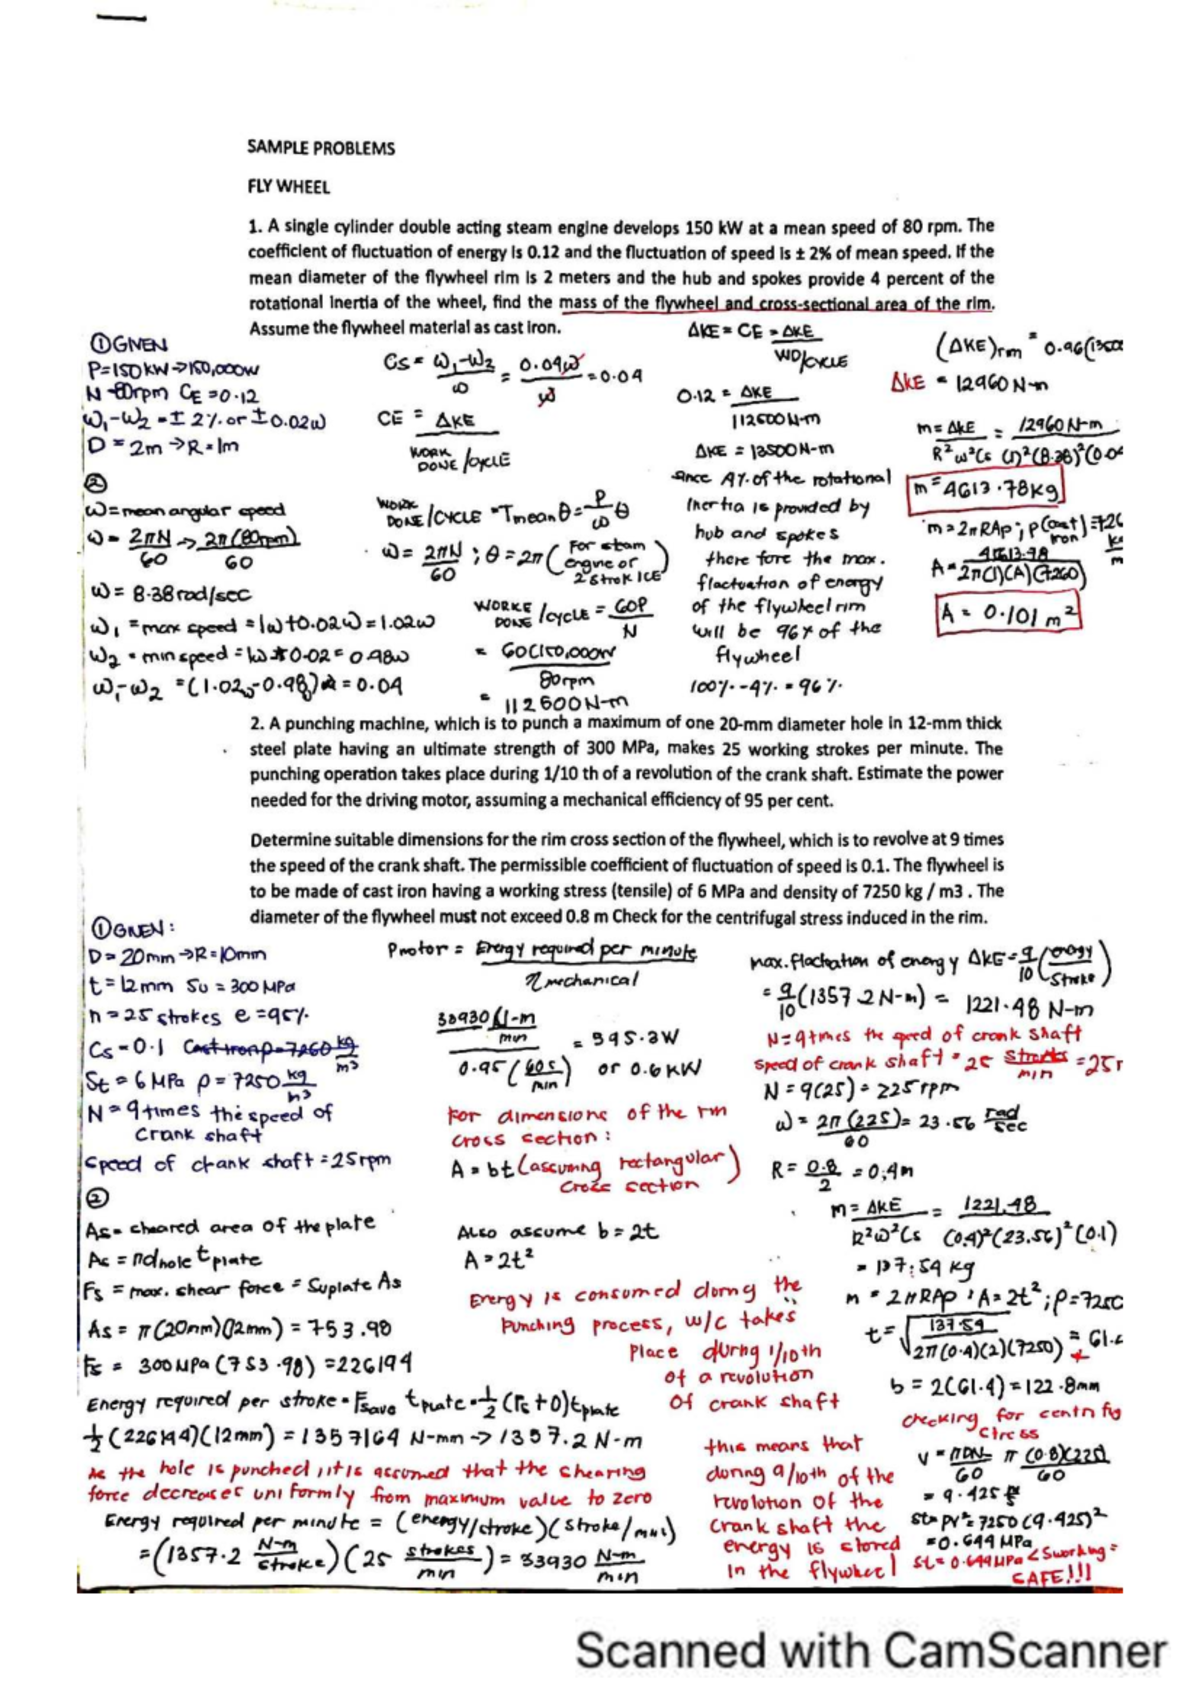 SAMPLE PROBLEMS
FLY WHEEL
1. A single cylinder double acting steam engine develops 150 kW at a mean speed of 80 rpm. The
coefficient of fluctuation of energy is 0.12 and the fluctuation of speed is ± 2% of mean speed. If the
mean diameter of the flywheel rim is 2 meters and the hub and spokes provide 4 percent of the
rotational inertia of the wheel, find the mass of the flywheel and cross-sectional area of the rim.
Assume the flywheel material as cast iron.
① GIVEN
P=150kW→150,000w
N=80rpm CE=0.12
ω1-ω2=±2% or ±0.02ω
D=2m→R=1m
②
ω=mean angular speed
ω=2πN/60→2π(80rpm)/60
ω=8.38rad/sec
ω1=max speed=1ω+0.02ω=1.02ω
ω1-ω2=(1.02-0.98)=0.04
Cs=ω1-ω2/ω=0.04ω/ω=0.04
CE=ΔKE/WORK DONE/CYCLE
WORK DONE/CYCLE=Tmeanθ=P/ω θ
ω=2πN/60;θ=2π(For steam engine or 2 strok ICE)
WORKE DONE/CYCLE=60P/N
=60(150,000W)/80rpm
=112500N-m
ΔKE=CE=ΔKE/WD/CYCLE
0.12=ΔKE/112500N-m
ΔKE=13500N-m
since 4% of the rotational
Inertia is provided by
hub and spokes
there fore the max.
fluctuation of energy
of the flywheel rim
will be 96% of the
flywheel
100%-4%=96%
ΔKE=12960N-m
m=ΔKE/R²ω²Cs=12960N-m
m=4613.78kg
A=0.101m²
2. A punching machine, which is to punch a maximum of one 20-mm diameter hole in 12-mm thick
steel plate having an ultimate strength of 300 MPa, makes 25 working strokes per minute. The
punching operation takes place during 1/10 th of a revolution of the crank shaft. Estimate the power
needed for the driving motor, assuming a mechanical efficiency of 95 per cent.
Determine suitable dimensions for the rim cross section of the flywheel, which is to revolve at 9 times
the speed of the crank shaft. The permissible coefficient of fluctuation of speed is 0.1. The flywheel is
to be made of cast iron having a working stress (tensile) of 6 MPa and density of 7250 kg / m3 . The
diameter of the flywheel must not exceed 0.8 m Check for the centrifugal stress induced in the rim.
① GIVEN:
D=20mm→R=10mm
t=12mm Su=300MPa
n=25strokes e=95%
Cs=0.1
St=6MPa ρ=7250 kg/m³
N=9times the speed of
crank shaft
Speed of crank shaft=25rpm
②
As=sheared area of the plate
As=πdhole tplate
Fs=max. shear force=Suplate As
As=π(20mm)(12mm)=753.98
Fs=300MPa(753.98)=226194
Energy required per stroke=Fsave tplate=1/2(Fs+0)tplate
1/2(226194)(12mm)=1357164 N-mm→1357.2N-m
As the hole is punched, it is assumed that the shearing
force decreases uniformly from maximum value to zero
Energy required per minute=(energy/stroke)(stroke/min)
=(1357.2 N-m/stroke)(25 strokes/min)=33930 N-m/min
Pmotor=Energy required per minute/ηmechanical
33930 N-m/min/0.95(60s/min)=595.3W
or 0.6kW
For dimensions of the rim
cross section:
A=bt(assuming rectangular
cross section)
Also assume b=2t
A=2t²
Energy is consumed during the
Punching process, w/c takes
place during 1/10th
of a revolution
of crank shaft
this means that
during 9/10th of the
revolution of the
crank shaft the
energy is stored
in the flywheel
max. fluctuation of energy ΔKE=9/10(energy/stroke)
=9/10(1357.2N-m)=1221.48N-m
N=9times the speed of crank shaft
speed of crank shaft=25 strokes/min
N=9(25)=225rpm
ω=2π(225)/60=23.56 rad/sec
R=0.8/2=0.4m
m=ΔKE/R²ω²Cs=1221.48/(0.4)²(23.56)²(0.1)
=137.59kg
m=2πRAρ;A=2t²;ρ=7250
t=√137.59/2π(0.4)(2)(7250)
b=2(61.4)=122.8mm
checking for centrifug
stress
V=πDN/60=π(0.8)(225)/60
St=ρv²=7250(9.425)²
=0.644MPa
St=0.644MPa<Sworking=
SAFE!!!
Scanned with CamScanner